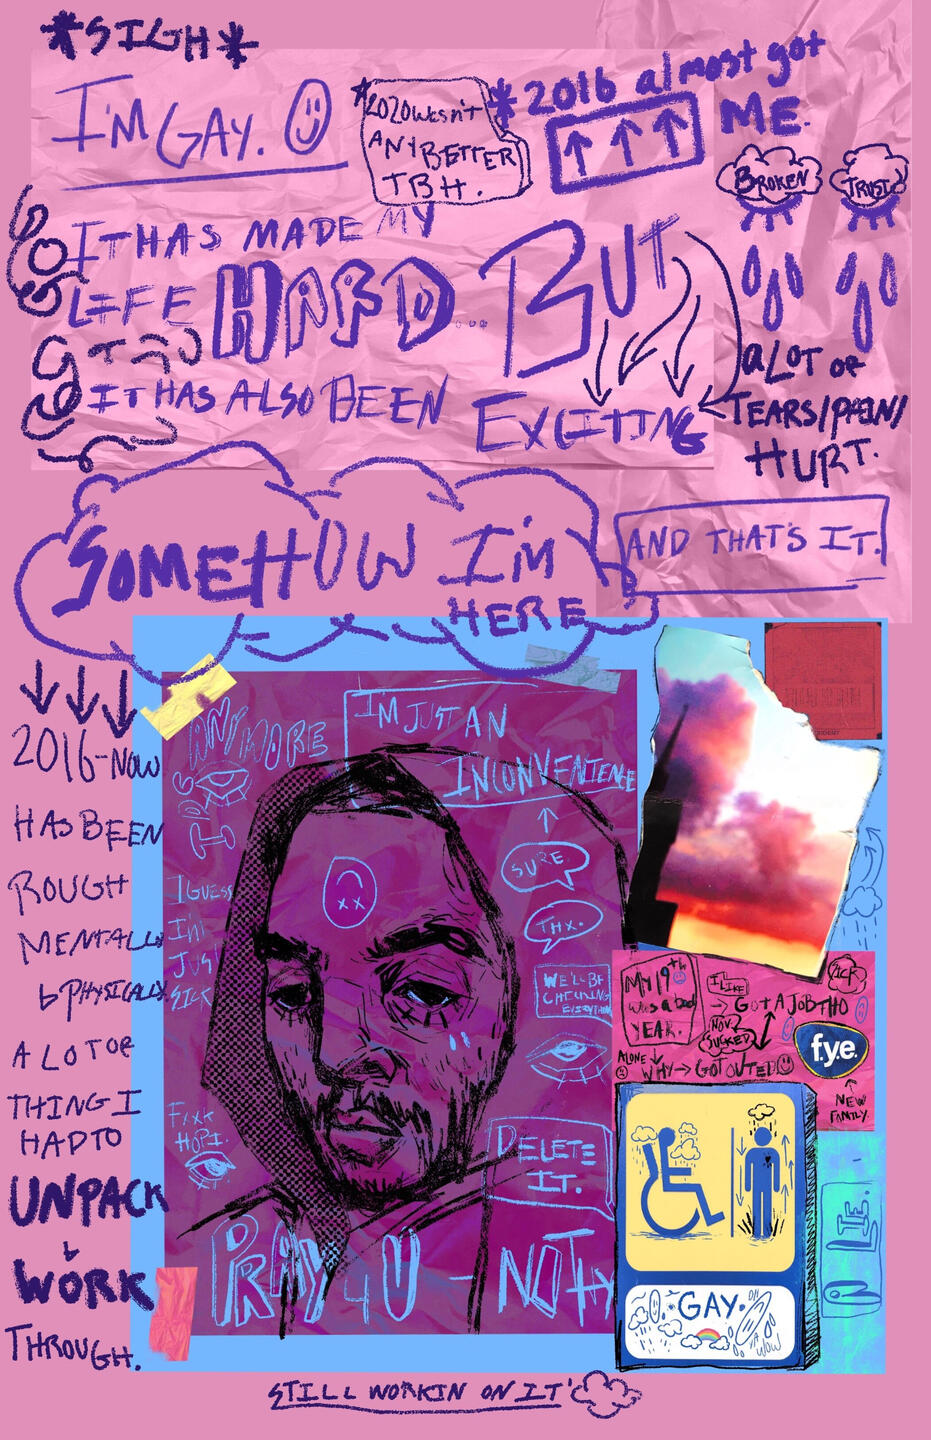 *SIGH*
I'M GAY.
*2020 wasn't
ANY BETTER
TBH.
*2016 almost got
ME.
BROKEN
TRUST
IT HAS MADE MY
LIFE HARD... BUT
IT HAS ALSO BEEN
EXCITING
A LOT OF
TEARS/PAIN/
HURT.
SOMEHOW I'M
HERE
AND THAT'S IT.
2016-NOW
HAS BEEN
ROUGH
MENTALLY
& PHYSICALLY
A LOT OF
THING I
HAD TO
UNPACK
&
WORK
THROUGH.
IDG
ANYMORE
I'M JUST AN
INCONVENIENCE
SURE.
THX.
WE'LL BE
CHECKING
I GUESS
JUST
SICK
DELETE
IT.
PRAY 4 U - NOTHY
MY 19th
was a bad
YEAR.
I LIKE
→ GOT A JOB THO
NOV.
SUCKED
ALONE
WHY → GOT OUTED
f.y.e.
NEW
FAMILY.
GAY.
WOW
LIE.
STILL WORKIN ON IT